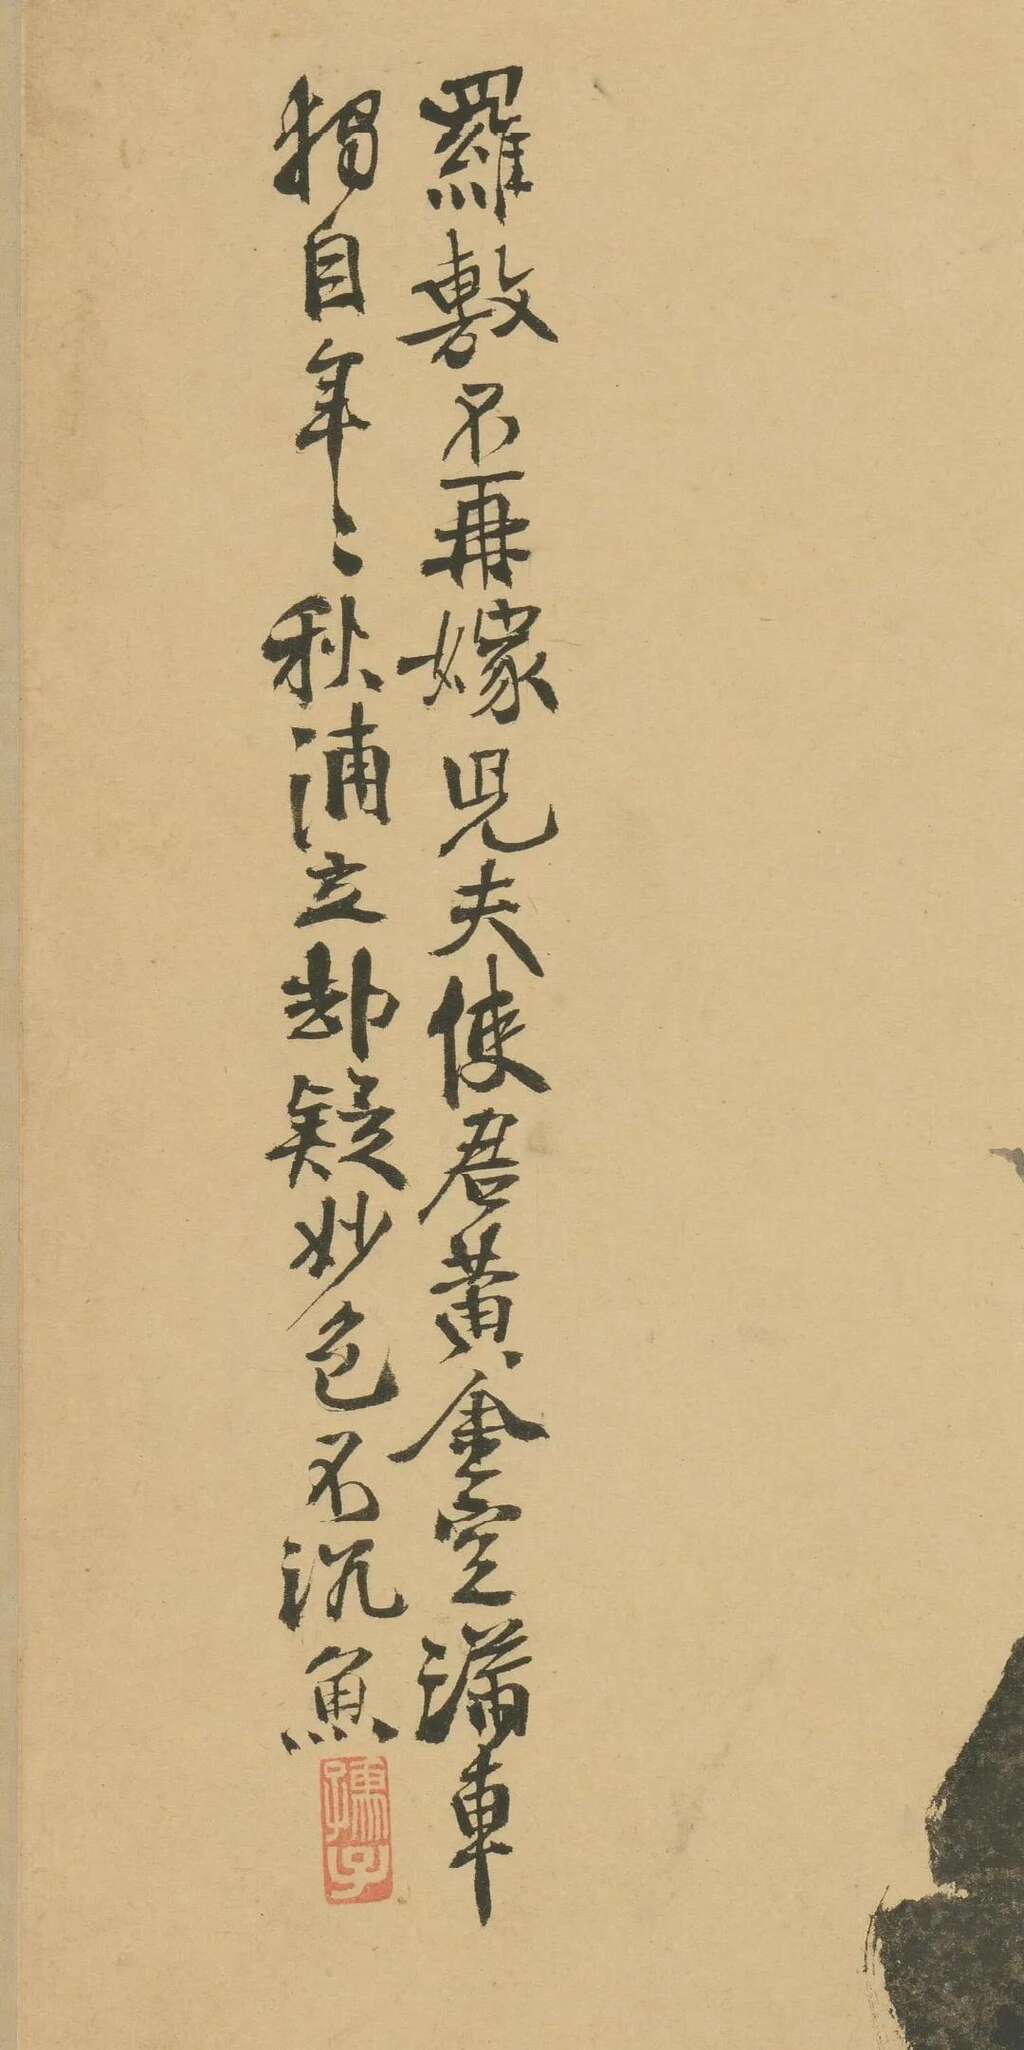 羅敷不再嫁兒夫使君黃金空滿車
獨自年〻秋浦立却疑妙色不沉魚